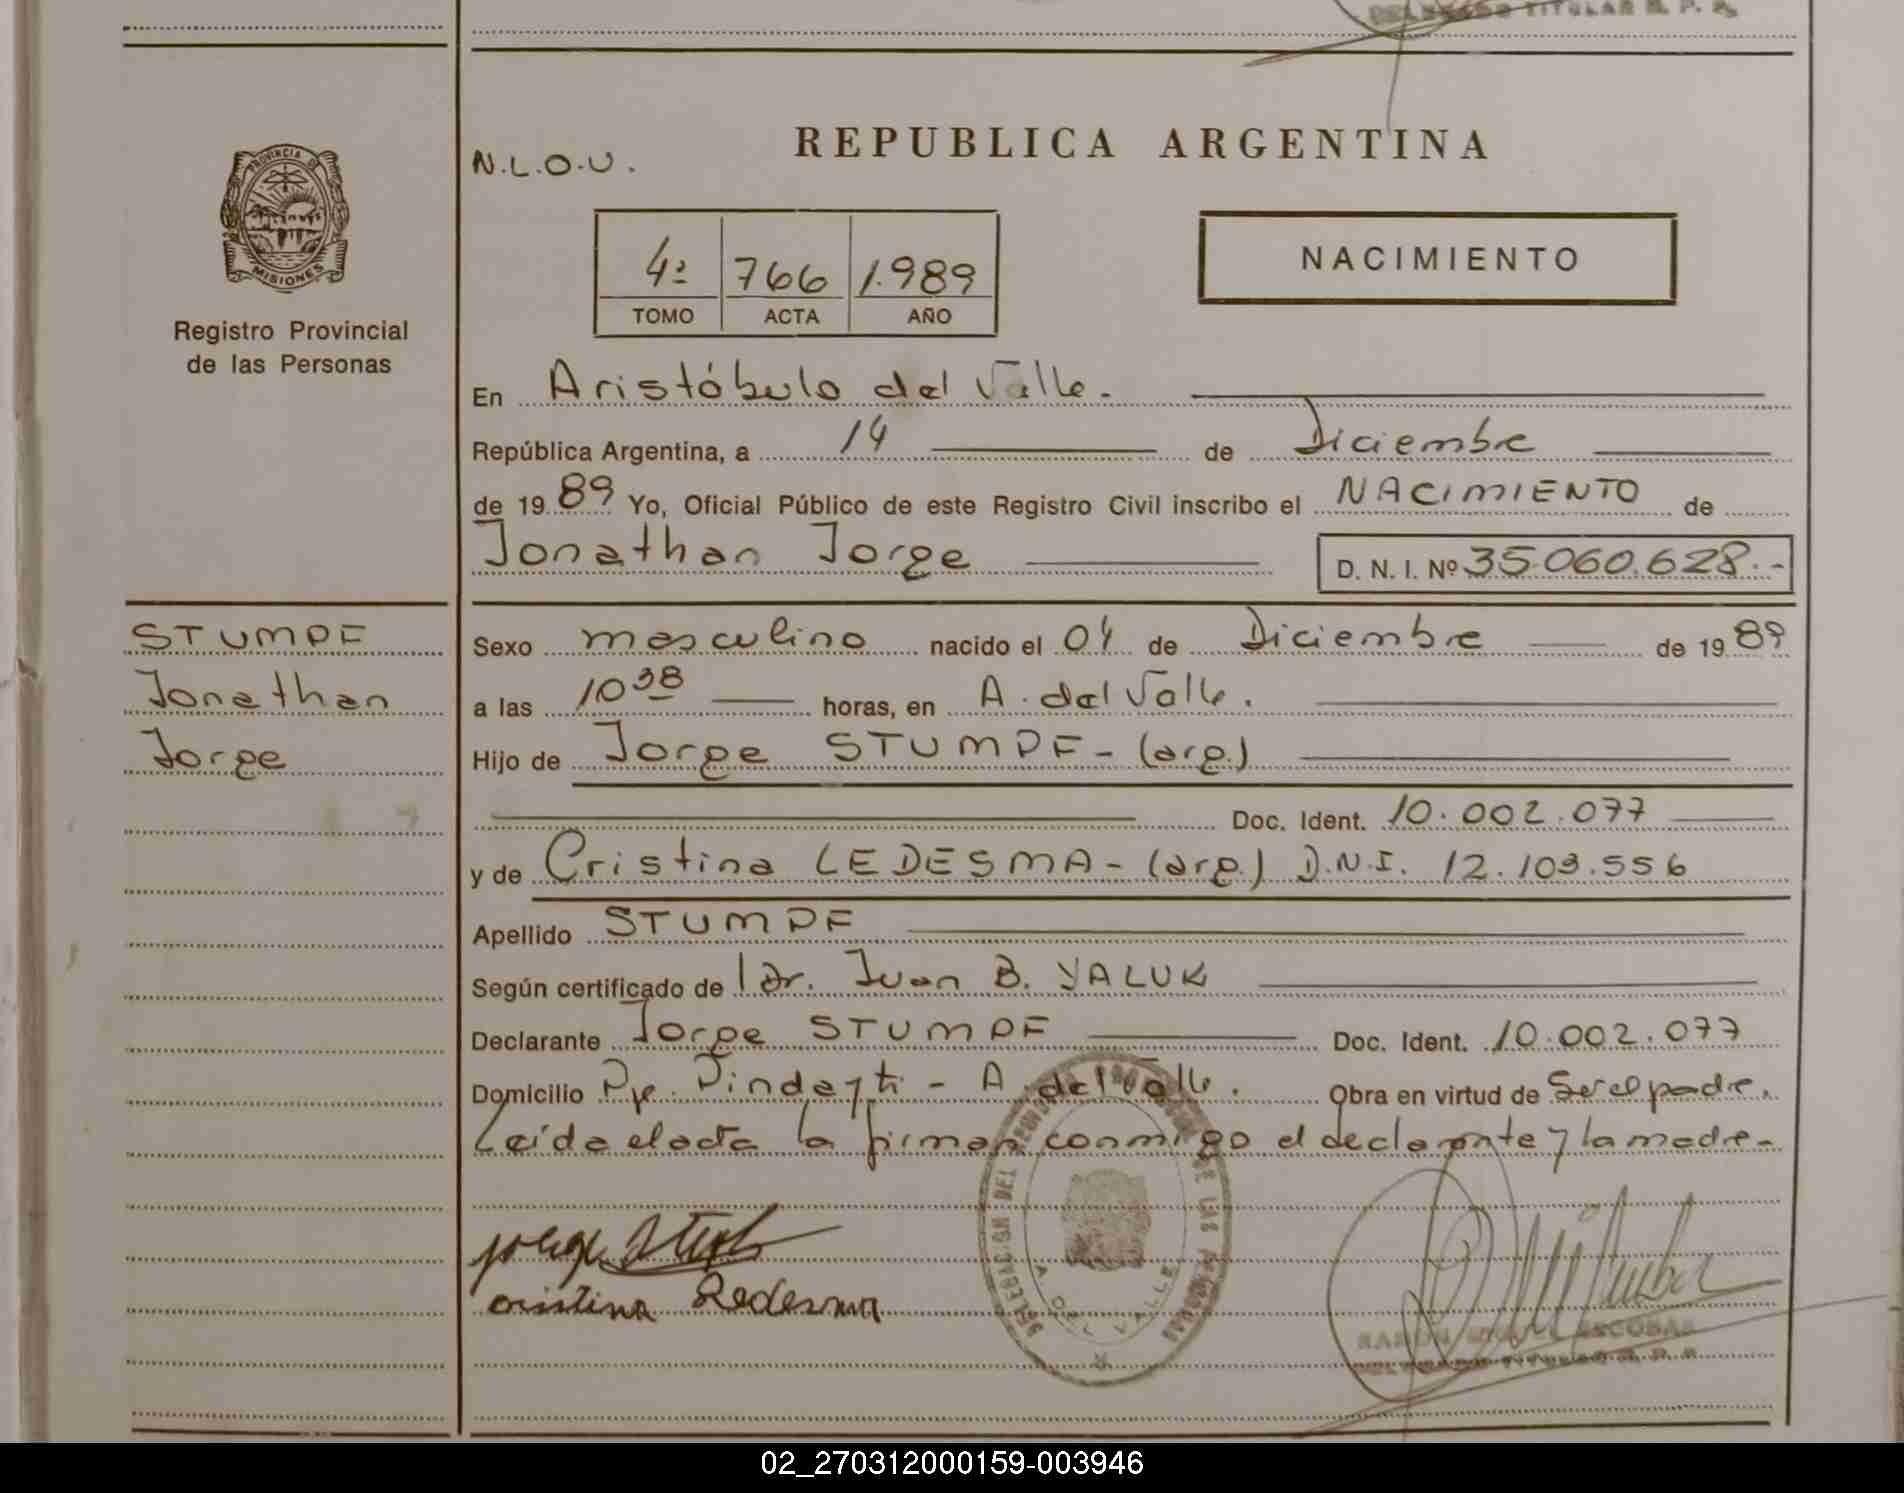 DELEGADO TITULAR R. P. P.
PROVINCIA DE
MISIONES
Registro Provincial
de las Personas
N.L.O.U.
REPUBLICA ARGENTINA
4º 766 1.989
TOMO ACTA AÑO
NACIMIENTO
En Aristóbulo del Valle.
República Argentina, a 14 de Diciembre
de 1989 Yo, Oficial Público de este Registro Civil inscribo el NACIMIENTO de
Jonathan Jorge D. N. I. Nº 35.060.628.-
STUMPF
Jonathan
Jorge
Sexo masculino nacido el 04 de Diciembre de 1989
a las 10 38 horas, en A. del Valle.
Hijo de Jorge STUMPF - (arg.)
Doc. Ident. 10.002.077
y de Cristina LEDESMA - (arg.) D.N.I. 12.103.556
Apellido STUMPF
Según certificado de Dr. Juan B. YALUK
Declarante Jorge STUMPF Doc. Ident. 10.002.077
Domicilio Pje. Pindayti - A. del Valle. Obra en virtud de Ser el padre.
Leída el acta la firman conmigo el declarante y la madre-
DELEGACION DEL REGISTRO PROVINCIAL DE LAS PERSONAS
A. DEL VALLE
cristina Ledesma
ESCOBAR
DELEGADO TITULAR R. P. P.
02_270312000159-003946